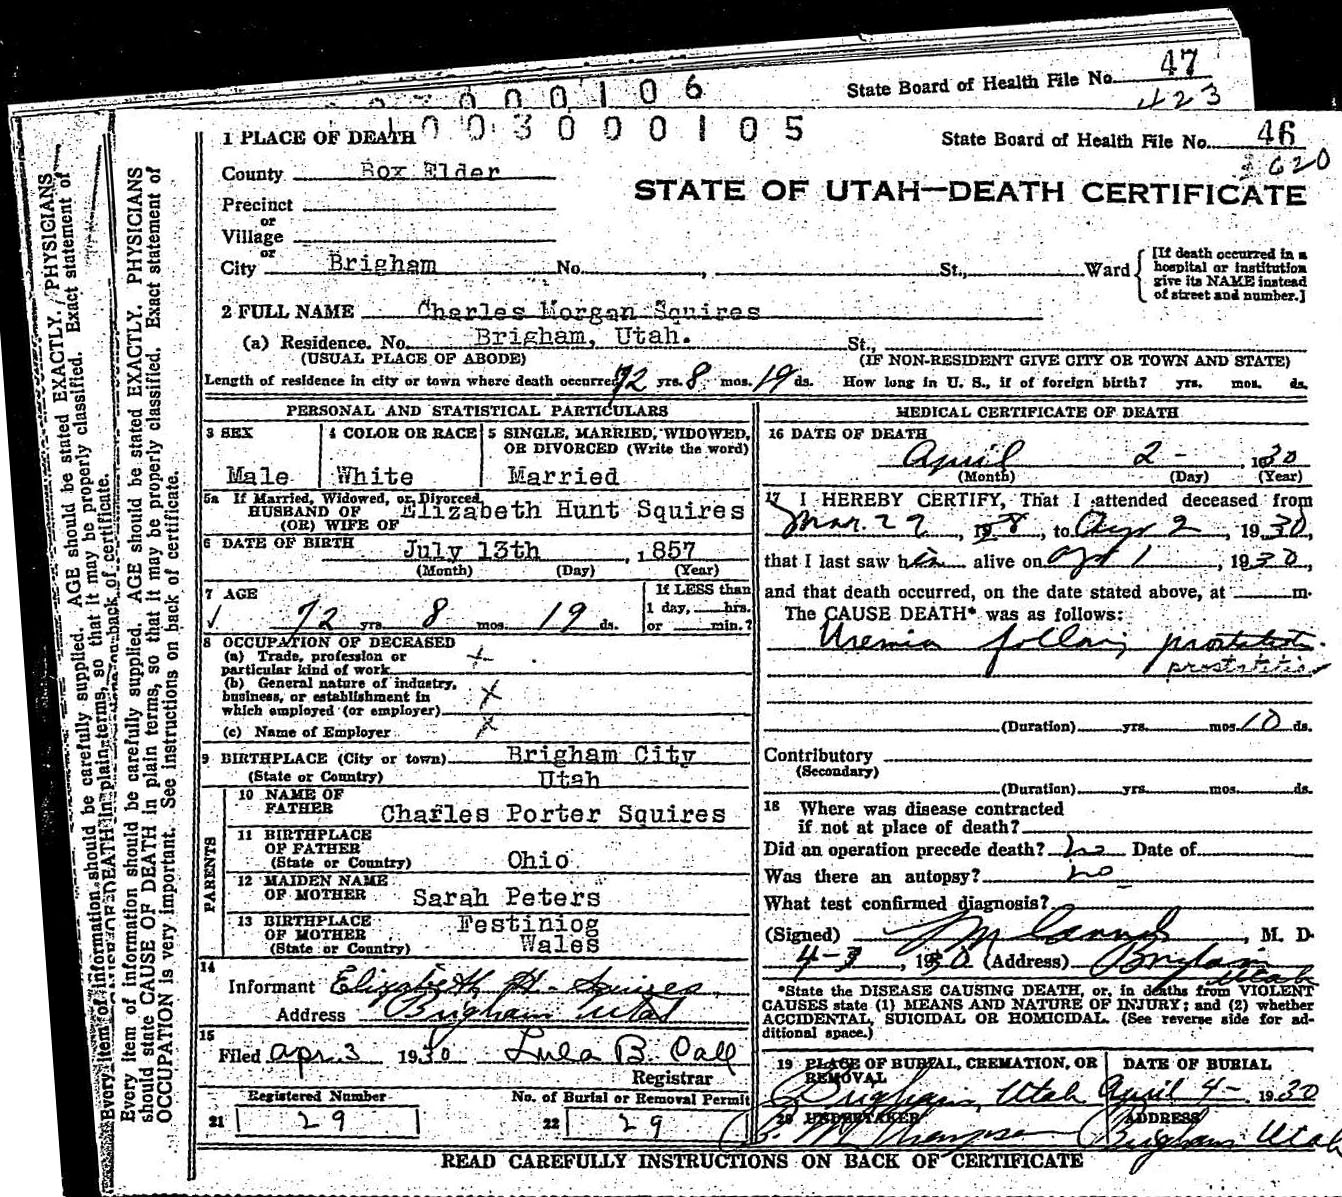 State Board of Health File No. 47
423
000106
1003000105
State Board of Health File No. 46
2620
1 PLACE OF DEATH
County Box Elder
STATE OF UTAH—DEATH CERTIFICATE
Precinct
or
Village
or
City Brigham No. , St., Ward
[If death occurred in a
hospital or institution
give its NAME instead
of street and number.]
2 FULL NAME Charles Morgan Squires
(a) Residence. No. Brigham, Utah. St.,
(USUAL PLACE OF ABODE) (IF NON-RESIDENT GIVE CITY OR TOWN AND STATE)
Length of residence in city or town where death occurred 72 yrs. 8 mos. 19 ds. How long in U. S., if of foreign birth? yrs. mos. ds.
PERSONAL AND STATISTICAL PARTICULARS
3 SEX 4 COLOR OR RACE 5 SINGLE, MARRIED, WIDOWED,
OR DIVORCED (Write the word)
Male White Married
5a If Married, Widowed, or Divorced
HUSBAND OF Elizabeth Hunt Squires
(OR) WIFE OF
6 DATE OF BIRTH July 13th , 1857
(Month) (Day) (Year)
7 AGE If LESS than
1 day, hrs.
72 yrs. 8 mos. 19 ds. or min.?
8 OCCUPATION OF DECEASED
(a) Trade, profession or
particular kind of work
(b) General nature of industry,
business, or establishment in
which employed (or employer)
(c) Name of Employer
9 BIRTHPLACE (City or town) Brigham City
(State or Country) Utah
PARENTS
10 NAME OF
FATHER Charles Porter Squires
11 BIRTHPLACE
OF FATHER
(State or Country) Ohio
12 MAIDEN NAME
OF MOTHER Sarah Peters
13 BIRTHPLACE Festiniog
OF MOTHER
(State or Country) Wales
14
Informant Elizabeth H. Squires
Address Brigham Utah
15
Filed Apr. 3 1930 Lula B. Call
Registrar
Registered Number No. of Burial or Removal Permit
21 29 22 29
MEDICAL CERTIFICATE OF DEATH
16 DATE OF DEATH
April 2- , 1930
(Month) (Day) (Year)
17 I HEREBY CERTIFY, That I attended deceased from
Mar. 22, 19 , to Apr 2, 1930,
that I last saw him alive on Apr 1, 1930,
and that death occurred, on the date stated above, at m.
The CAUSE DEATH* was as follows:
Uremia following prostatitis
prostatitis
(Duration) yrs. mos. 10 ds.
Contributory
(Secondary)
(Duration) yrs. mos. ds.
18 Where was disease contracted
if not at place of death?
Did an operation precede death? no Date of
Was there an autopsy? no
What test confirmed diagnosis?
(Signed) , M. D.
4-3, 1930 (Address) Brigham
Utah
*State the DISEASE CAUSING DEATH, or, in deaths from VIOLENT
CAUSES state (1) MEANS AND NATURE OF INJURY; and (2) whether
ACCIDENTAL, SUICIDAL OR HOMICIDAL. (See reverse side for ad-
ditional space.)
19 PLACE OF BURIAL, CREMATION, OR DATE OF BURIAL
REMOVAL
Brigham, Utah April 4- 1930
20 UNDERTAKER ADDRESS
Brigham Utah
READ CAREFULLY INSTRUCTIONS ON BACK OF CERTIFICATE
Every item of information should be carefully supplied. AGE should be stated EXACTLY. PHYSICIANS
should state CAUSE OF DEATH in plain terms, so that it may be properly classified. Exact statement of
OCCUPATION is very important. See instructions on back of certificate.